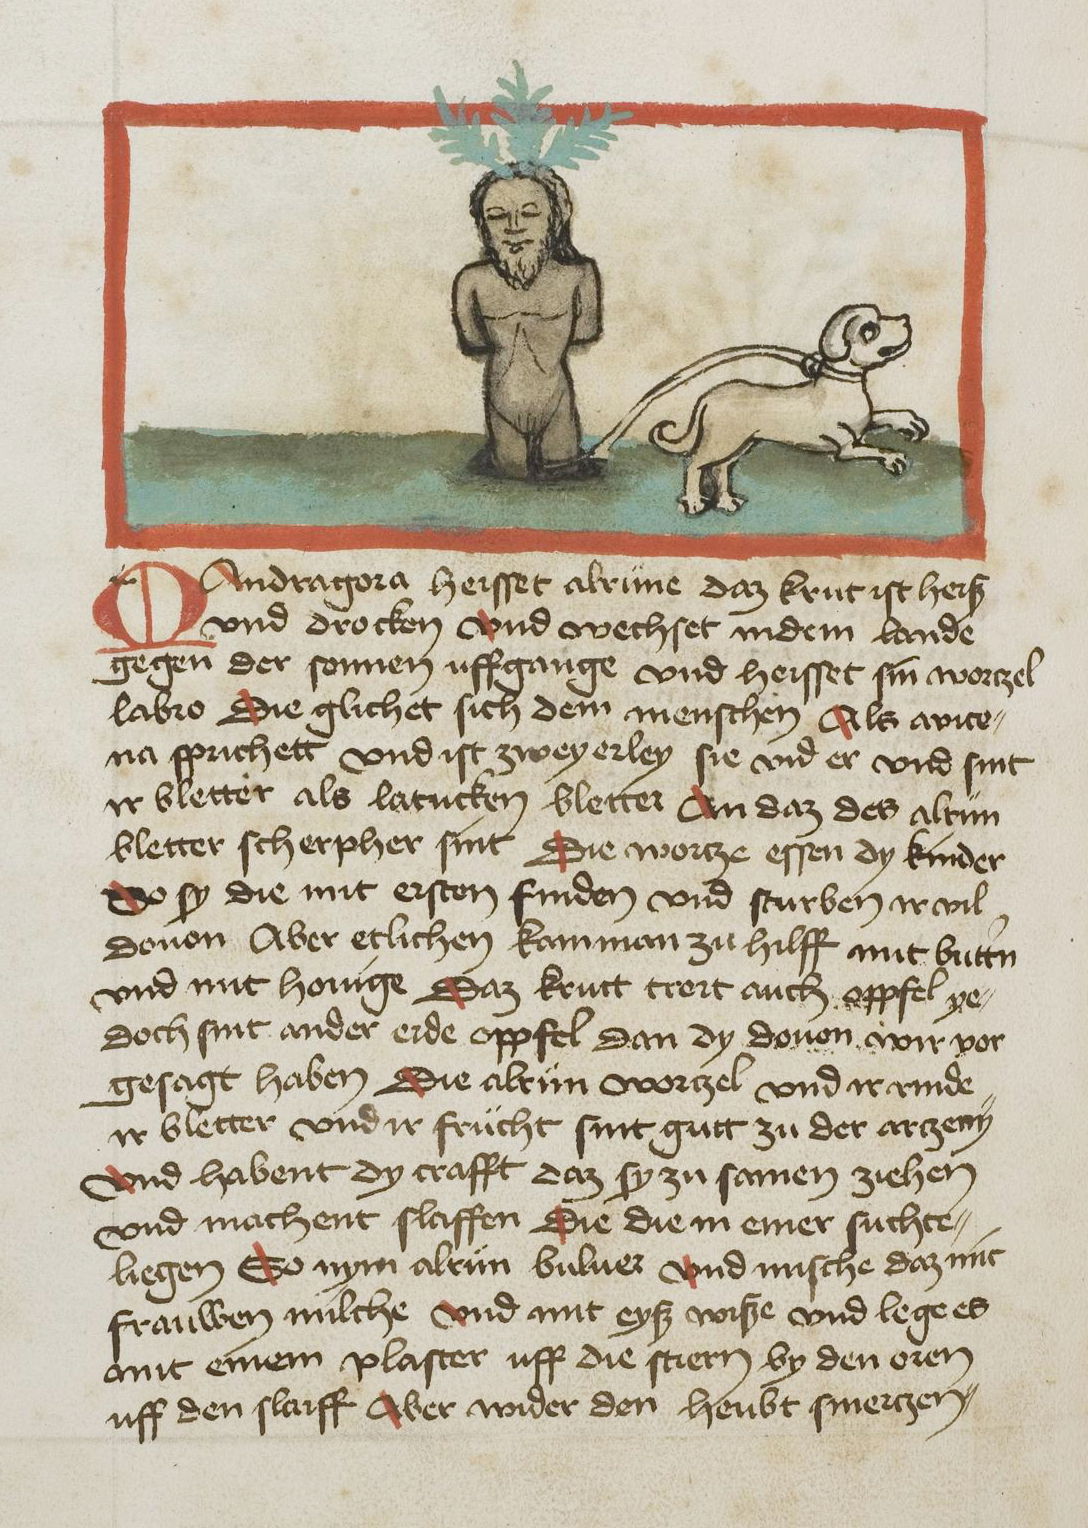 MAndragora heisset alrüne daz krut ist heiß
vnd drocken Vnd wechset in dem lande
gegen der sonnen uffgange vnd heisset sin wortzel
labro Die glichet sich dem menschen Als avice⸗
na sprichett vnd ist zweyerley sie vnd er vnd sint
ir bletter als latucken bletter An daz des alrün
bletter scherpher sint Die wortze essen dy kinder
So sy die mit ersten finden vnd sturben ir vil
douon Aber etlichen kam man zu hilff mit buttern
vnd mit honige Daz krutt trert auch oppfel ye⸗
doch sint ander erde oppfel dan dy douon wir vor
gesagt haben Die alrün wortzel vnd ir rinde
ir bletter vnd ir frücht sint gutt zu der artzeny
Vnd habent dy crafft daz sy zu samen ziehen
vnd machent slaffen Die die in einer suchte⸗
liegen So nym alrün buluer Vnd mische daz mit
frauwen milche Vnd mit eyß wiße vnd lege es
mit einem plaster uff die stiern by den oren
uff den slaiff Aber wider den heubt smertzen